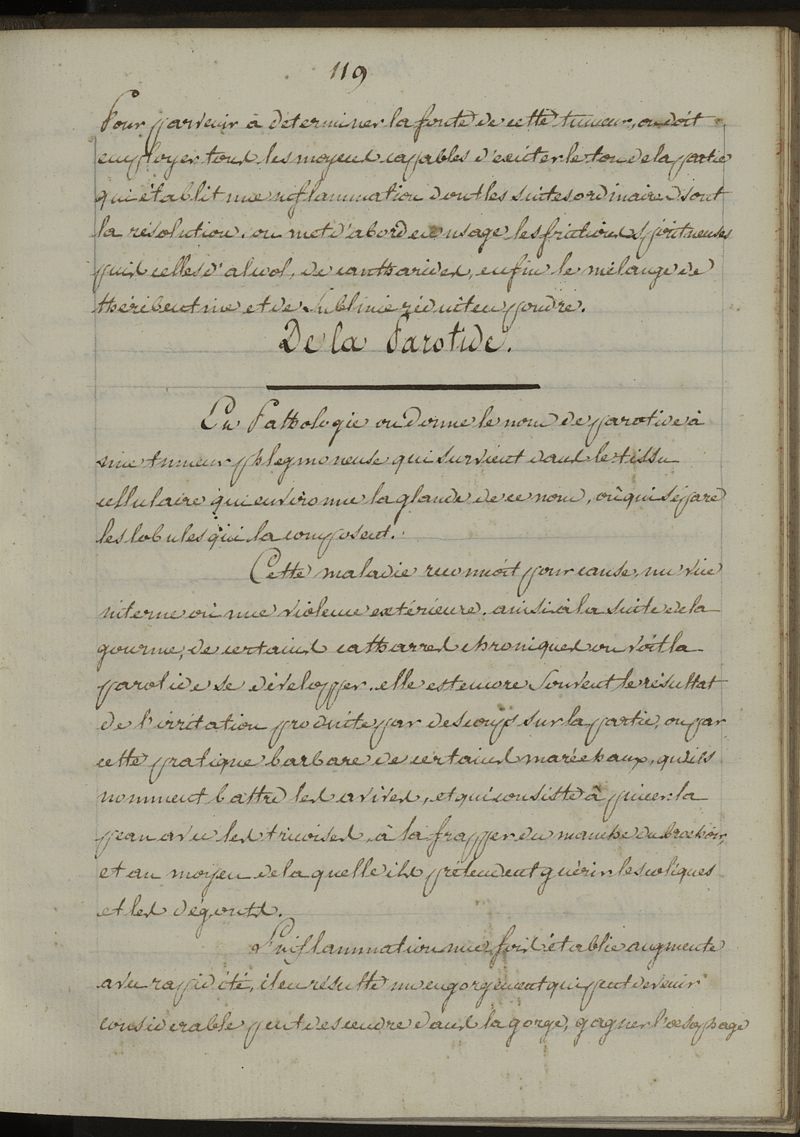 119
Pour parvenir à determiner la fonte de cette tumeur, on doit
employer tous les moyens capables d'exciter le ton de la partie
qui établit une inflammation dont les suites ordinaires sont
la résolution. on met d'abord en usage les frictions spiritueuses
puis celles d'alcol, de cantharides, enfin le mélange de
théribentine et de sublimé réduit en poudre.
De la Parotide.
En Pathologie on donne le nom de parotide à
une tumeur phlegmoneuse qui survient dans le tissu
cellulaire qui environne la glande de ce nom, où qui sépare
les lobules qui la composent.
Cette maladie reconnoit pour cause, un vice
interne où une violence extérieure. ainsi à la suite de la
gourme, de certains catharres chroniques on voit la
parotide se développer. elle est encore souvent le résultat
de l'irritation produite par des coups sur la partie, ou par
cette pratique barbare de certains maréchaux, qu'ils
nomment battre les avives, et qui consiste à pincer la
peau avec les tricoises, à la frapper du manche du brochoir,
et au moyen de la quelle ils prétendent guérir les coliques
et les dégouts.
L'inflammation une fois établie augmente
avec rapidité, il en résulte un engorgement qui peut devenir
considerable peut descendre dans la gorge, gagner l'œsophage